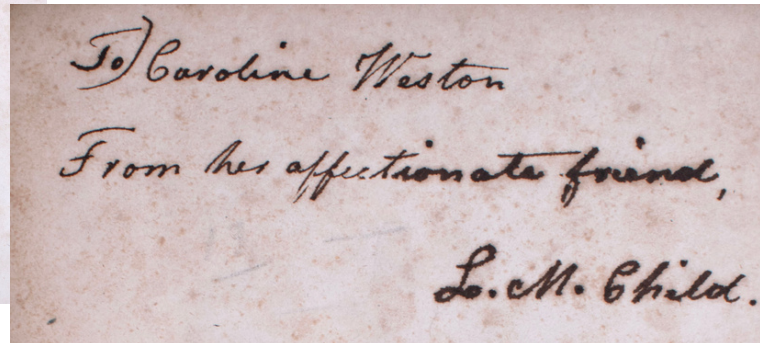 To) Caroline Weston
From her affectionate friend,
L. M. Child.